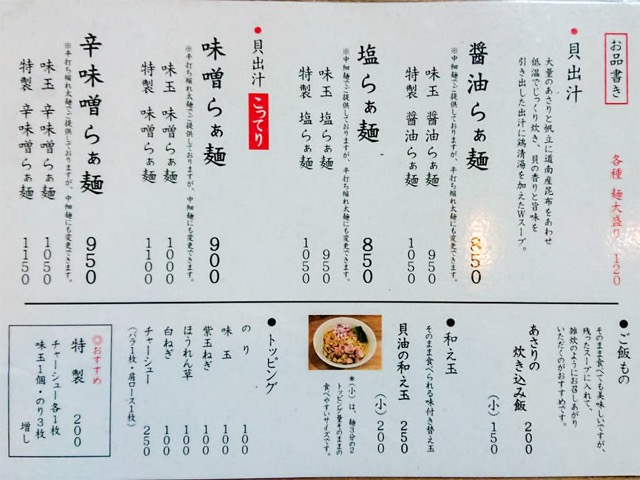 お品書き
各種 麺大盛り 120
●貝出汁
大量のあさりと帆立に道南産昆布をあわせ
低温でじっくり炊き、貝の香りと旨味を
引き出した出汁に鶏清湯を加えたWスープ。
醤油らぁ麺 850
※中細麺でご提供しておりますが、平打ち縮れ太麺にも変更できます。
味玉 醤油らぁ麺 950
特製 醤油らぁ麺 1050
塩らぁ麺 850
※中細麺でご提供しておりますが、平打ち縮れ太麺にも変更できます。
味玉 塩らぁ麺 950
特製 塩らぁ麺 1050
●貝出汁 こってり
味噌らぁ麺 900
※平打ち縮れ太麺でご提供しておりますが、中細麺にも変更できます。
味玉 味噌らぁ麺 1000
特製 味噌らぁ麺 1100
辛味噌らぁ麺 950
※平打ち縮れ太麺でご提供しておりますが、中細麺にも変更できます。
味玉 辛味噌らぁ麺 1050
特製 辛味噌らぁ麺 1150
●ご飯もの
そのまま食べても美味しいですが、
残ったスープに入れて、
雑炊のようにお召しあがり
いただくのがおすすめです。
あさりの
炊き込み飯 200
(小) 150
●和え玉
そのまま食べられる味付き替え玉
貝油の和え玉 250
(小) 200
*(小)は、麺3分の2
トッピング量そのままの
食べやすいサイズです。
●トッピング
のり 100
味玉 100
紫玉ねぎ 100
ほうれん草 100
白ねぎ 100
チャーシュー 250
(バラ1枚・肩ロース1枚)
◎おすすめ
特製 200
チャーシュー各1枚
味玉1個・のり3枚
増し